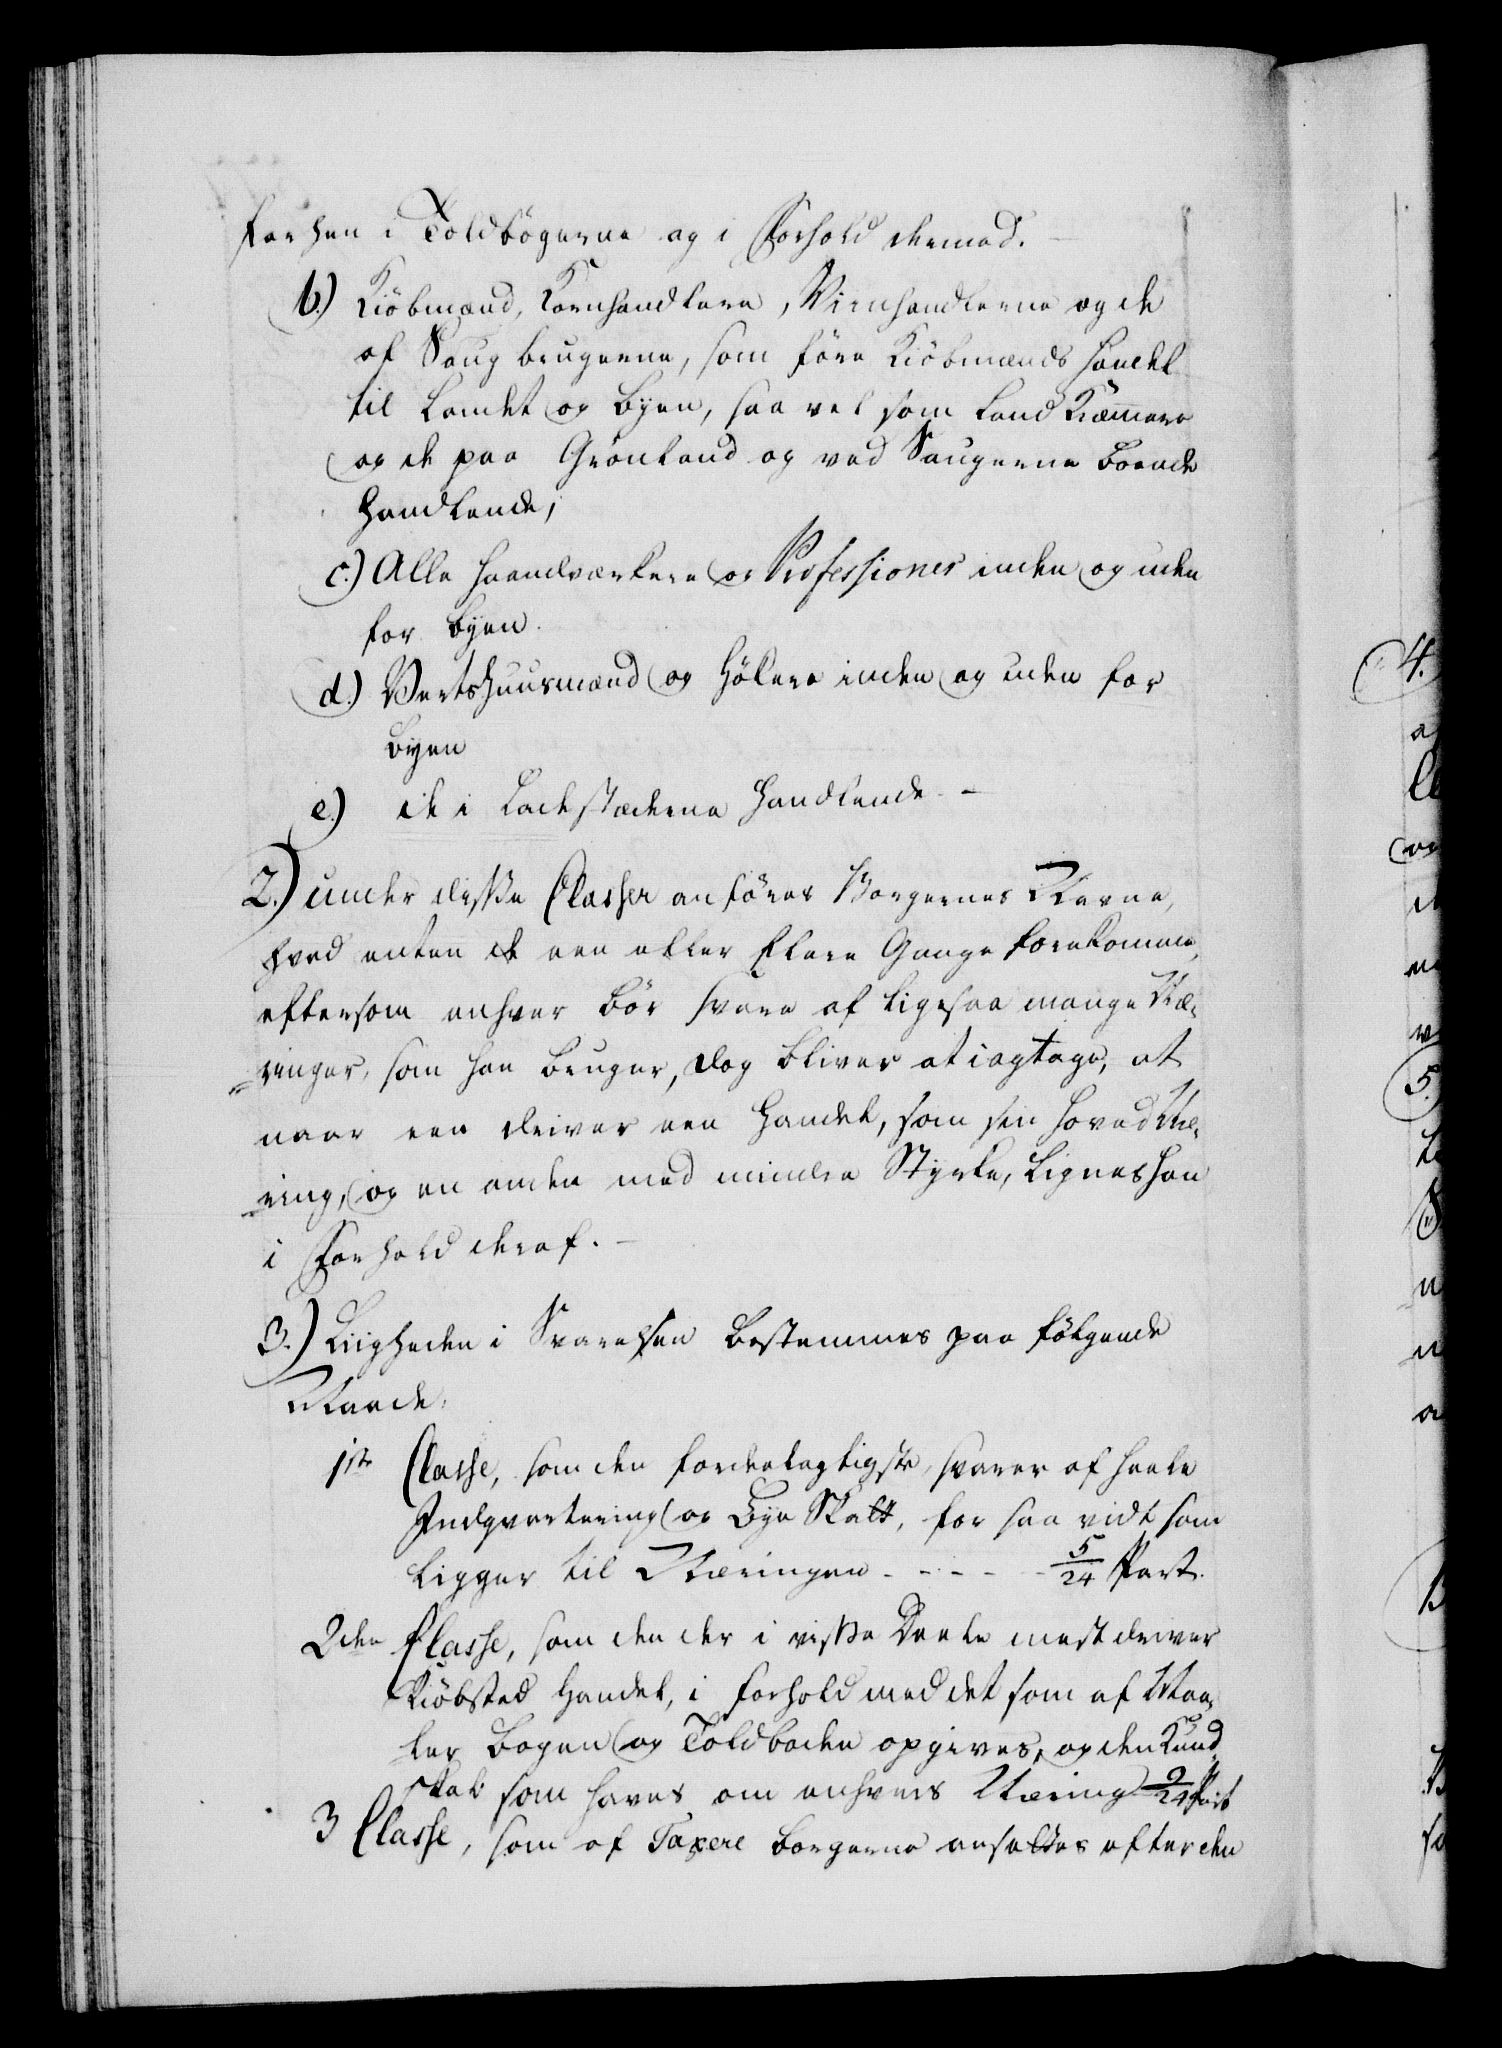 forhen i Toldbögerne og i Forhold dermed. -
b.) Kiöbmænd, Kornhandlere, Viinhandlerne og de
af Saug brugerne, som före Kiöbmands Handel
til Landet og Byen, saa vel som Land Kræmmere
og de paa Grönland og ved Saugerne boende
Handlende;
c.) Alle Haandværkere og Professioner inden og uden
for Byen.
d.) Vertshuusmænd og Hökere inden og uden for
Byen
e.) de i Ladestæderne Handlende. -
2.) under disse Classer anföres Borgernes Navne,
hvad enten de een eller flere Gange forekomme,
eftersom enhver bör svare af ligesaa mange Næ-
ringer, som han bruger, dog bliver at iagtage, at
naar een driver een Handel, som sin Hoved Næ-
ring, og en anden med mindre Styrke, lignes han
i Forhold deraf. -
3.) Liigheden i Svarelsen bestemmes paa fölgende
Maade:
1ste Classe, som den fordeelagtigste, svarer af heele
Indqvartering og Bye Skatt, for saa vidt som
ligger til Næringen - - - - - 5/24 Part.
2den Classe, som den der i visse Deele mest driver
Kiöbsted Handel, i Forhold med det som af Maa-
ler Bogen og Toldboden opgives, og den Kund-
skab som haves om enhvers Næring 9/24 Part
3 Classe, som af Taxere borgerne ansættes efter den